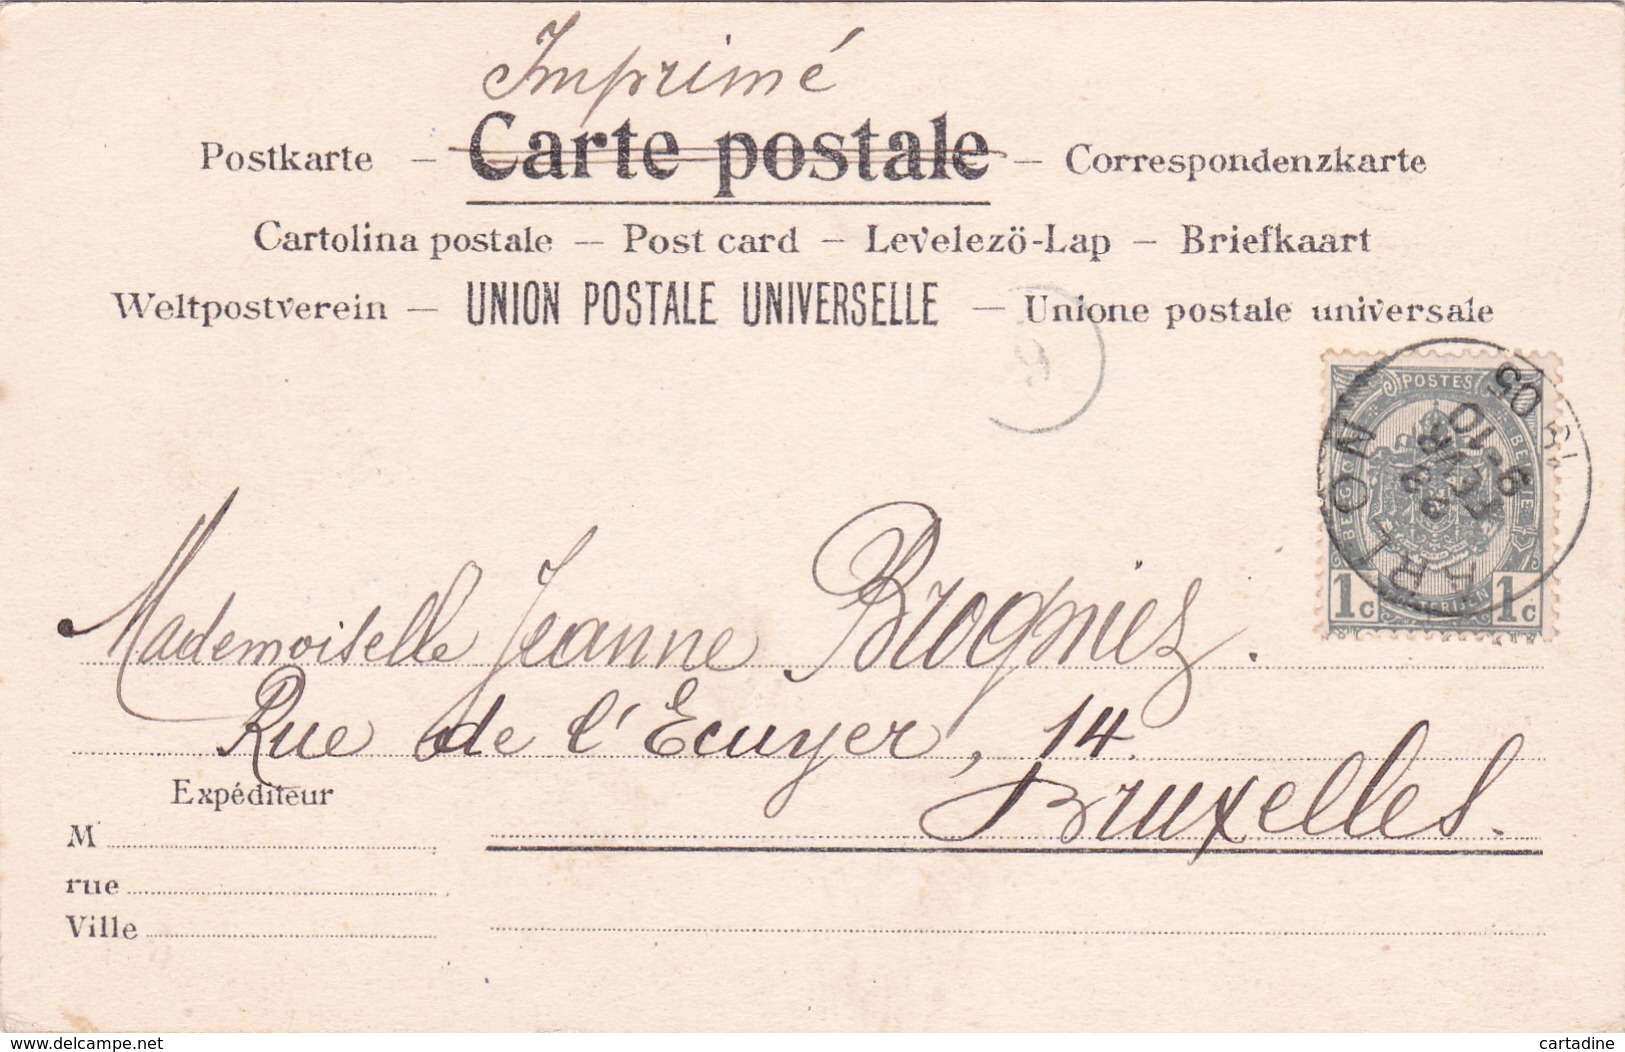 Imprimé
Postkarte – Carte postale – Correspondenzkarte
Cartolina postale – Post card – Levelezö-Lap – Briefkaart
Weltpostverein – UNION POSTALE UNIVERSELLE – Unione postale universale
POSTES
BELGIQUE
1c 1c
ARLON
9-10
03
Mademoiselle Jeanne Brogniez.
Rue de l'Ecuyer, 14.
Bruxelles.
Expéditeur
M
rue
Ville
www.delcampe.net
cartadine